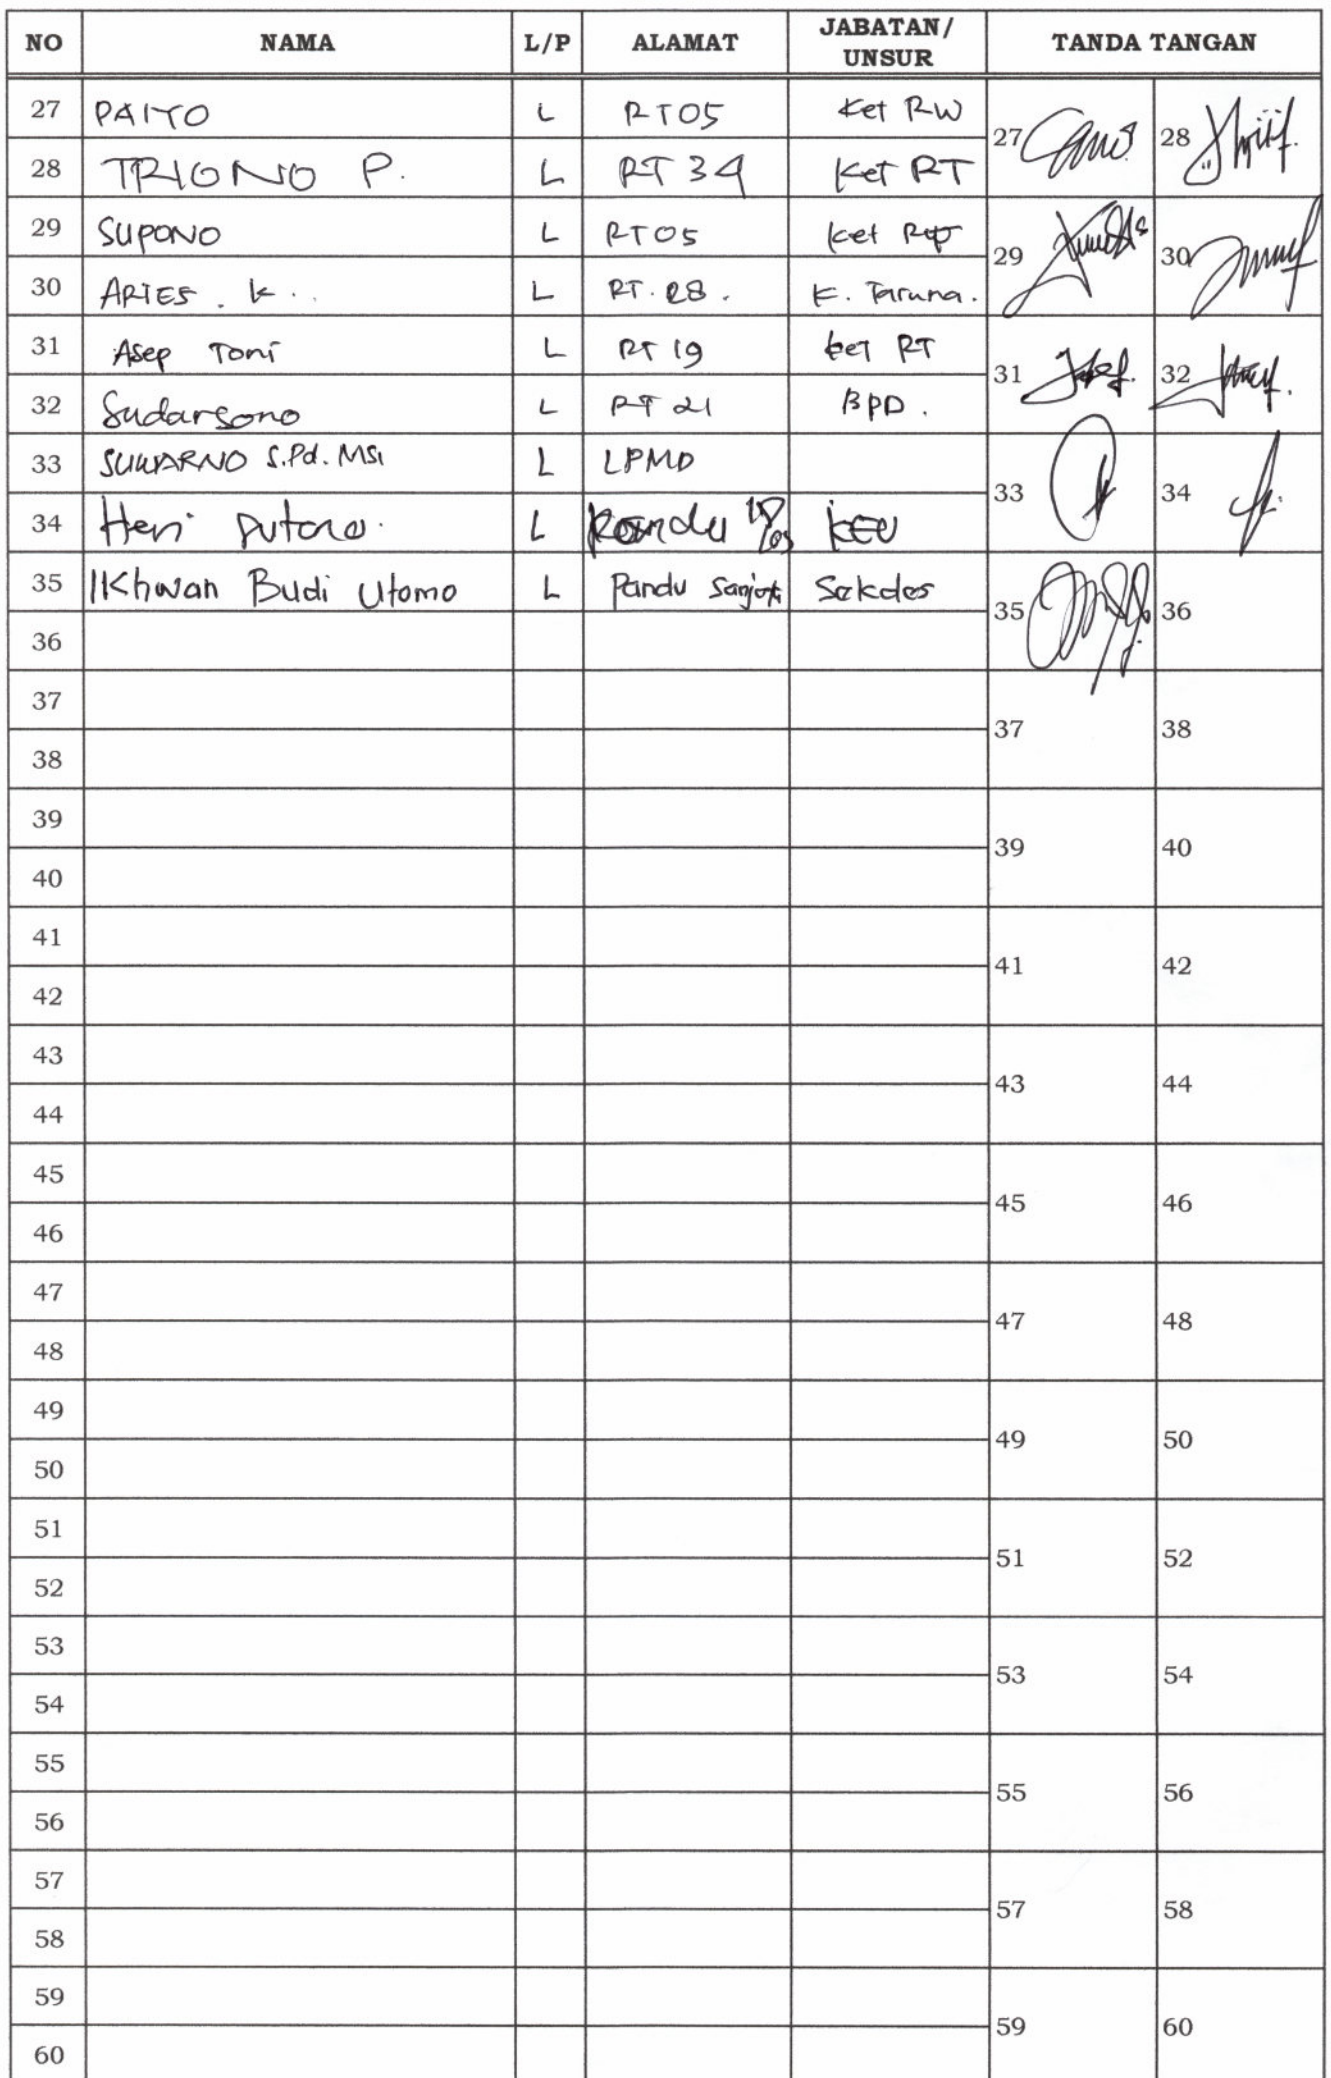 NO NAMA L/P ALAMAT JABATAN/ UNSUR TANDA TANGAN
27 PAIYO L RT05 Ket RW 27 28
28 TRIONO P. L RT 34 Ket RT
29 SUPONO L RT05 Ket 29 30
30 ARIES . K .. L RT. 28 . K. Taruna.
31 Asep Toni L RT 19 Ket RT 31 32
32 Sudarsono L RT 21 BPD .
33 SUWARNO S.Pd. MSi L LPMD 33 34
34 Heri L KEU
35 IKhwan Budi Utomo L Pandu Sekdes 35 36
36
37 37 38
38
39 39 40
40
41 41 42
42
43 43 44
44
45 45 46
46
47 47 48
48
49 49 50
50
51 51 52
52
53 53 54
54
55 55 56
56
57 57 58
58
59 59 60
60